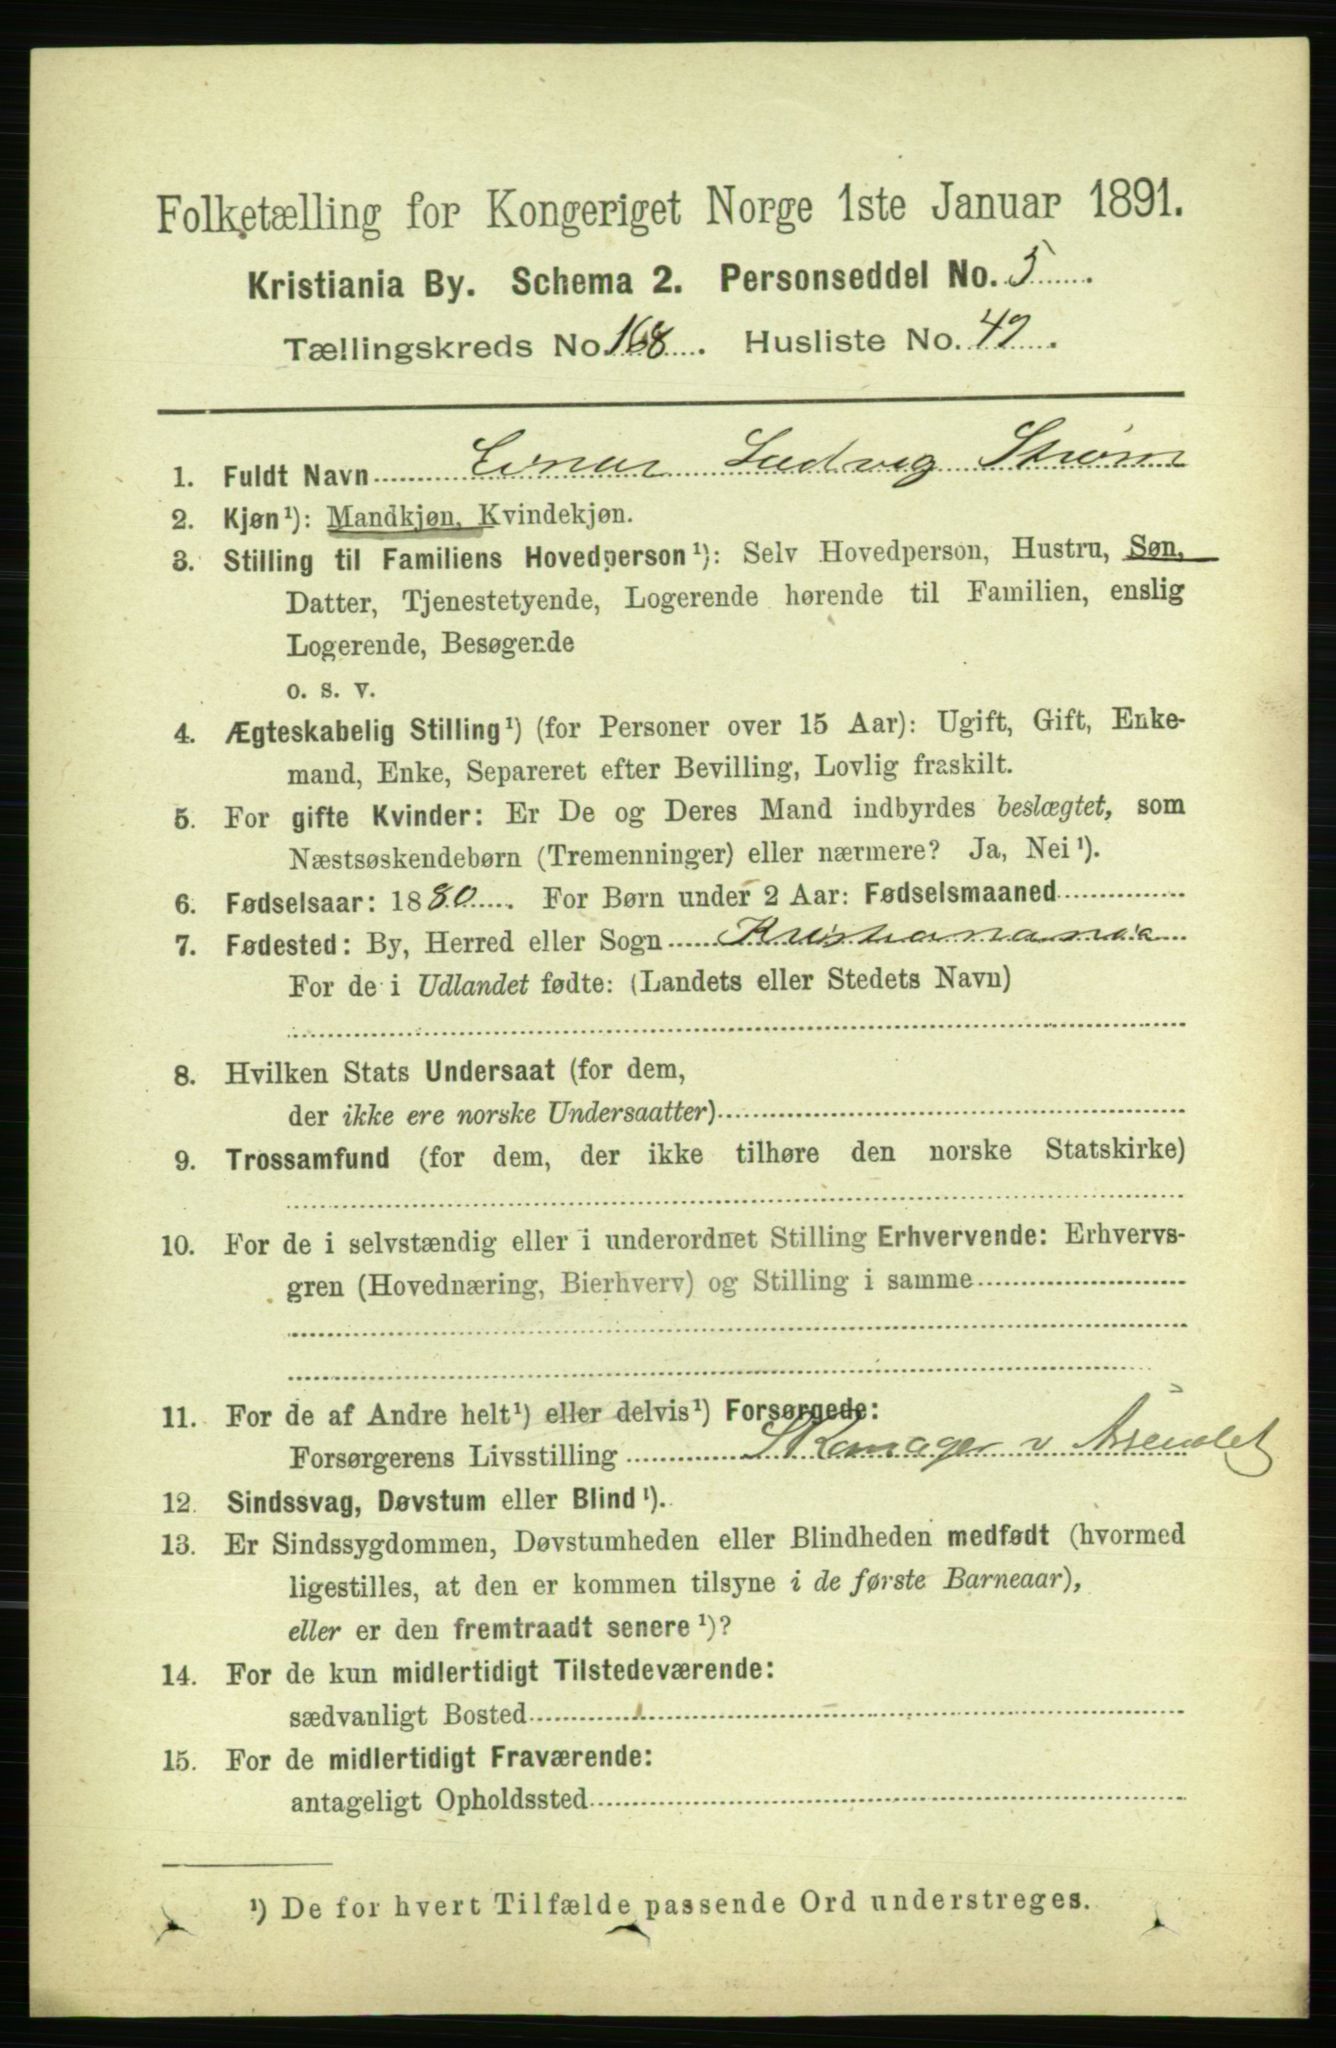 Folketælling for Kongeriget Norge 1ste Januar 1891.
Kristiania By. Schema 2. Personseddel No. 5
Tællingskreds No. 168. Husliste No. 42.
1. Fuldt Navn Einar Ludvig Strøm
2. Kjøn¹): Mandkjøn, Kvindekjøn.
3. Stilling til Familiens Hovedperson¹): Selv Hovedperson, Hustru, Søn,
Datter, Tjenestetyende, Logerende hørende til Familien, enslig
Logerende, Besøgende
o. s. v.
4. Ægteskabelig Stilling¹) (for Personer over 15 Aar): Ugift, Gift, Enke-
mand, Enke, Separeret efter Bevilling, Lovlig fraskilt.
5. For gifte Kvinder: Er De og Deres Mand indbyrdes beslægtet, som
Næstsøskendebørn (Tremenninger) eller nærmere? Ja, Nei¹).
6. Fødselsaar: 1880. For Børn under 2 Aar: Fødselsmaaned
7. Fødested: By, Herred eller Sogn
For de i Udlandet fødte: (Landets eller Stedets Navn)
8. Hvilken Stats Undersaat (for dem,
der ikke ere norske Undersaatter)
9. Trossamfund (for dem, der ikke tilhøre den norske Statskirke)
10. For de i selvstændig eller i underordnet Stilling Erhvervende: Erhvervs-
gren (Hovednæring, Bierhverv) og Stilling i samme
11. For de af Andre helt¹) eller delvis¹) Forsørgede:
Forsørgerens Livsstilling Skomager v
12. Sindssvag, Døvstum eller Blind¹).
13. Er Sindssygdommen, Døvstumheden eller Blindheden medfødt (hvormed
ligestilles, at den er kommen tilsyne i de første Barneaar),
eller er den fremtraadt senere¹)?
14. For de kun midlertidigt Tilstedeværende:
sædvanligt Bosted
15. For de midlertidigt Fraværende:
antageligt Opholdssted
¹) De for hvert Tilfælde passende Ord understreges.